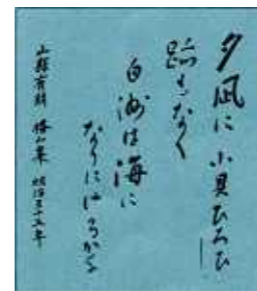 夕凪に小貝ひろひし
跡もなく
白洲は海に
なりにけるかな
山縣有朋 椿山集 明治三十五年